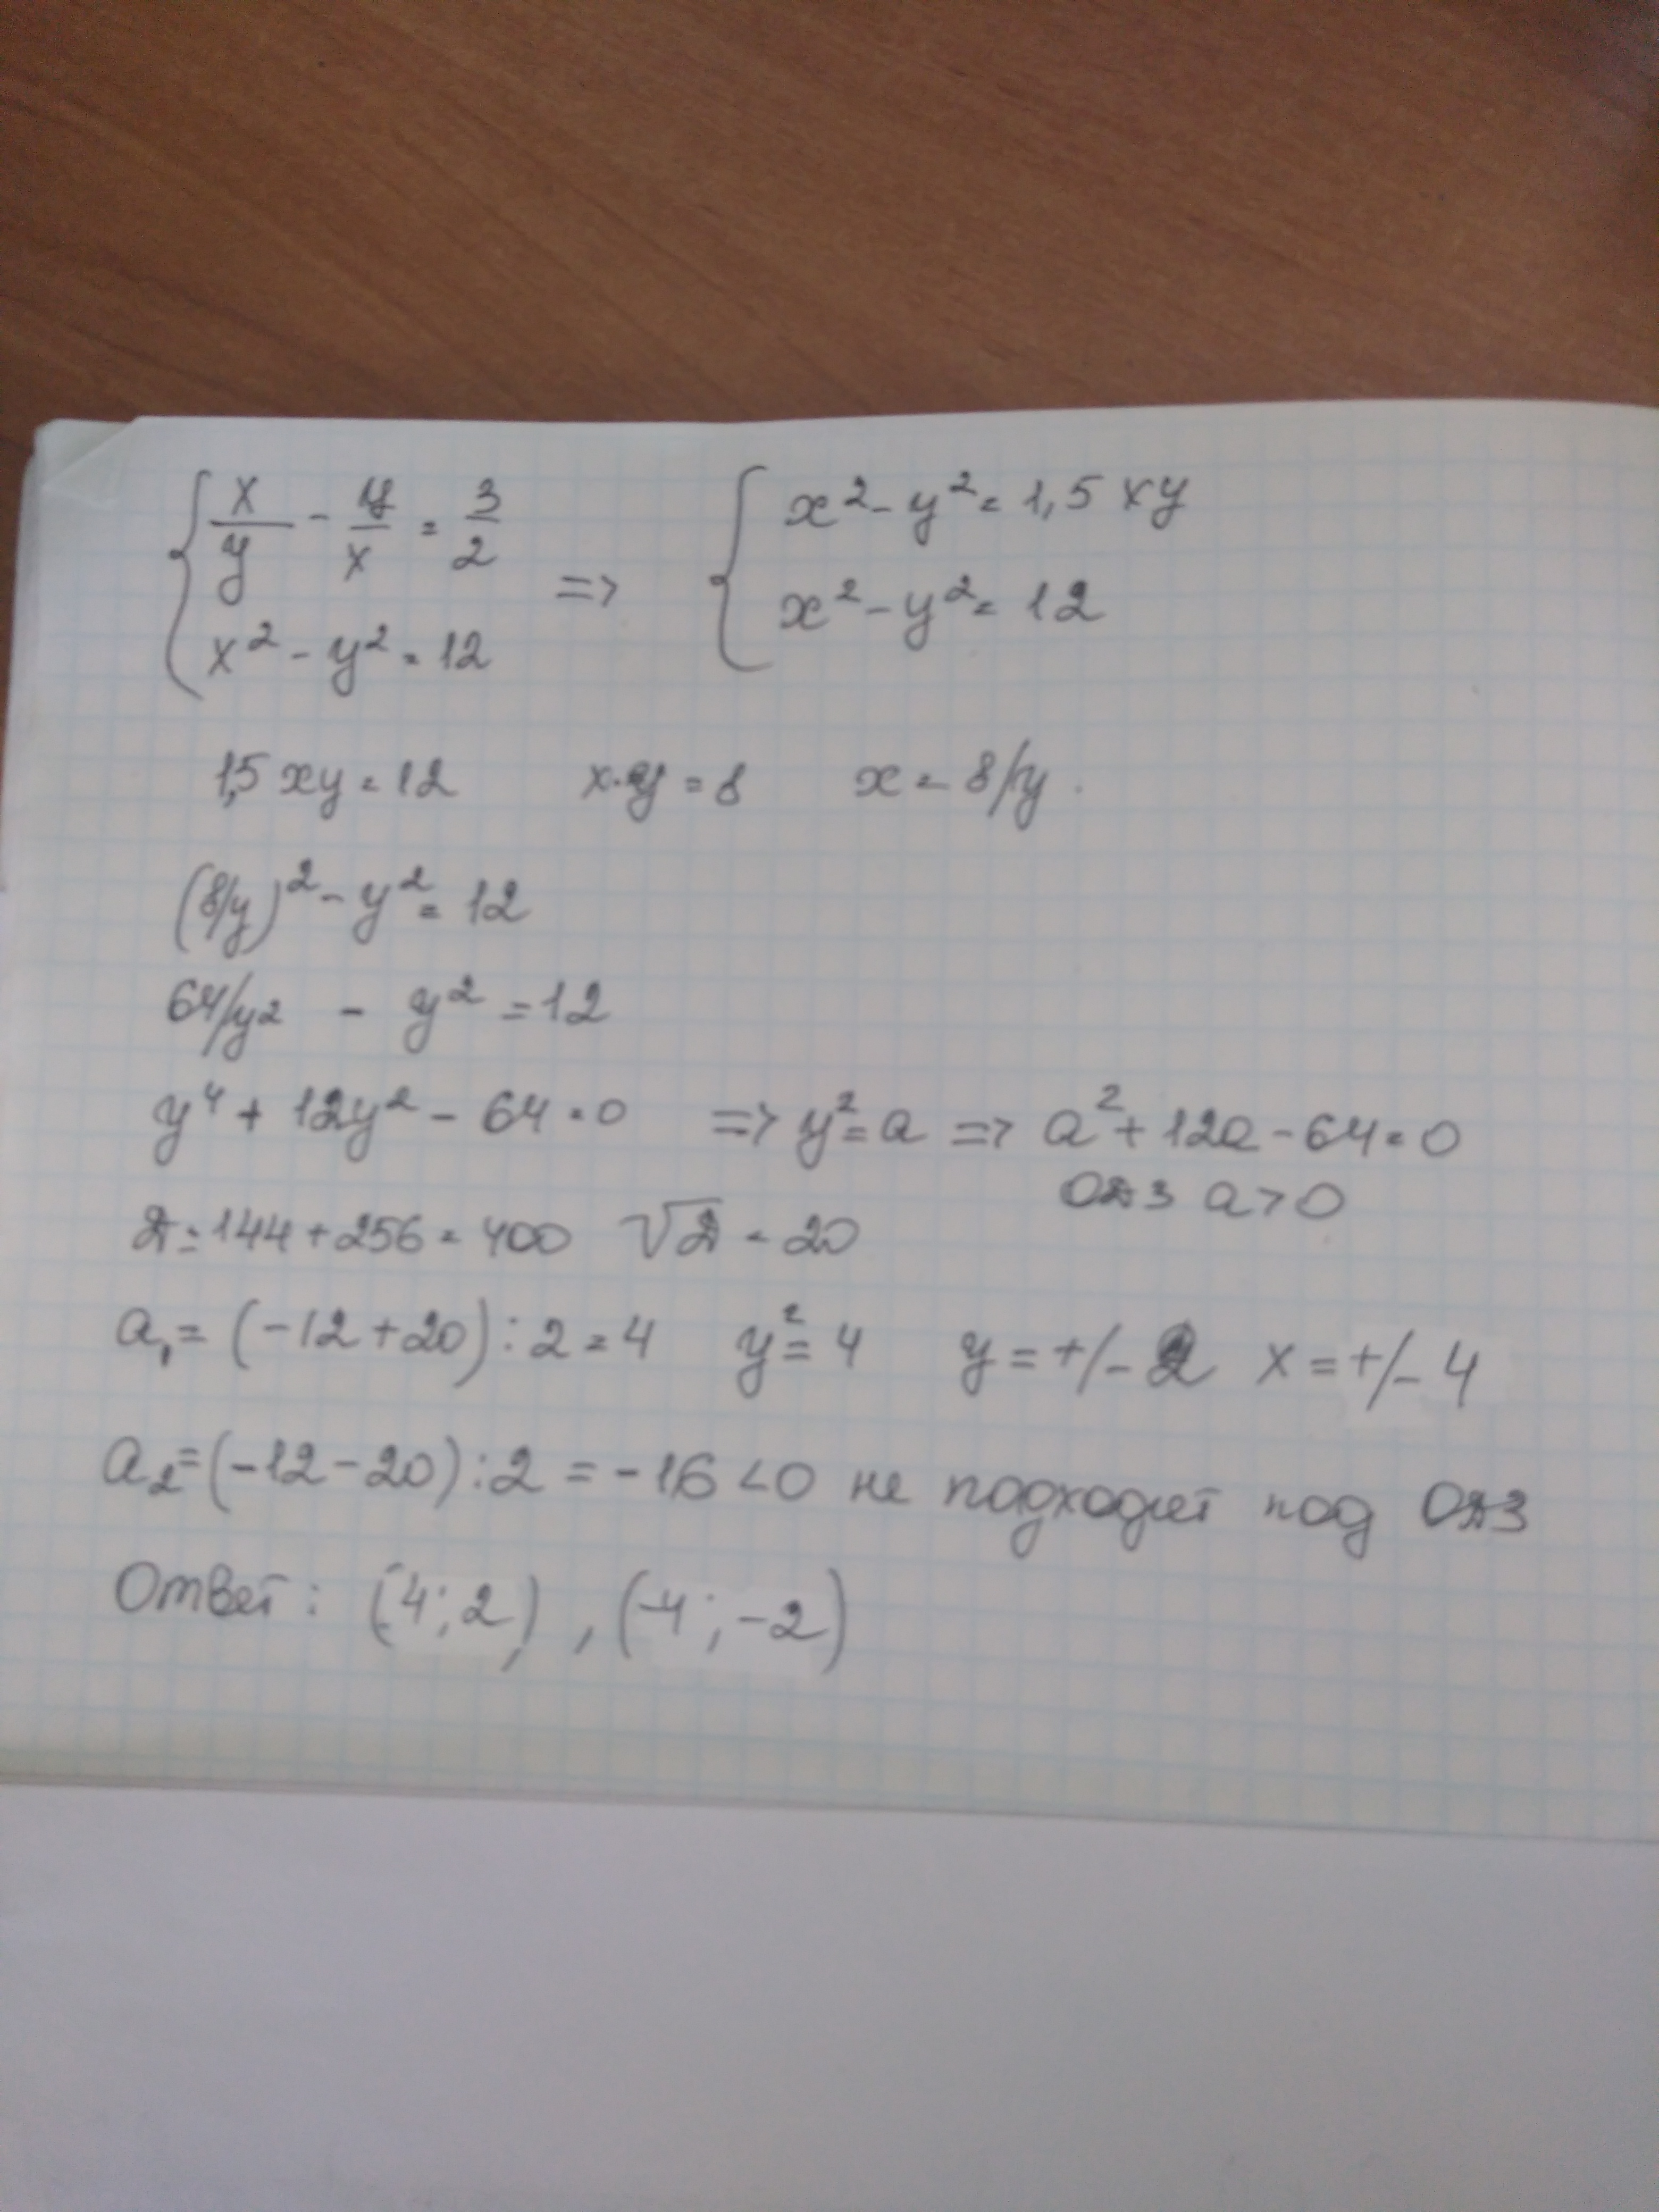 { x/y - y/x = 3/2 => { x² - y² = 1,5 xy
x² - y² = 12 x² - y² = 12
1,5 xy = 12 x·y = 8 x = 8/y.
(8/y)² - y² = 12
64/y² - y² = 12
y⁴ + 12y² - 64 = 0 => y² = a => a² + 12a - 64 = 0
ОДЗ a > 0
Д = 144 + 256 = 400 √Д = 20
a₁ = (-12 + 20) : 2 = 4 y² = 4 y = +/- 2 x = +/- 4
a₂ = (-12 - 20) : 2 = -16 < 0 не подходит под ОДЗ
Ответ: (4; 2), (-4; -2)